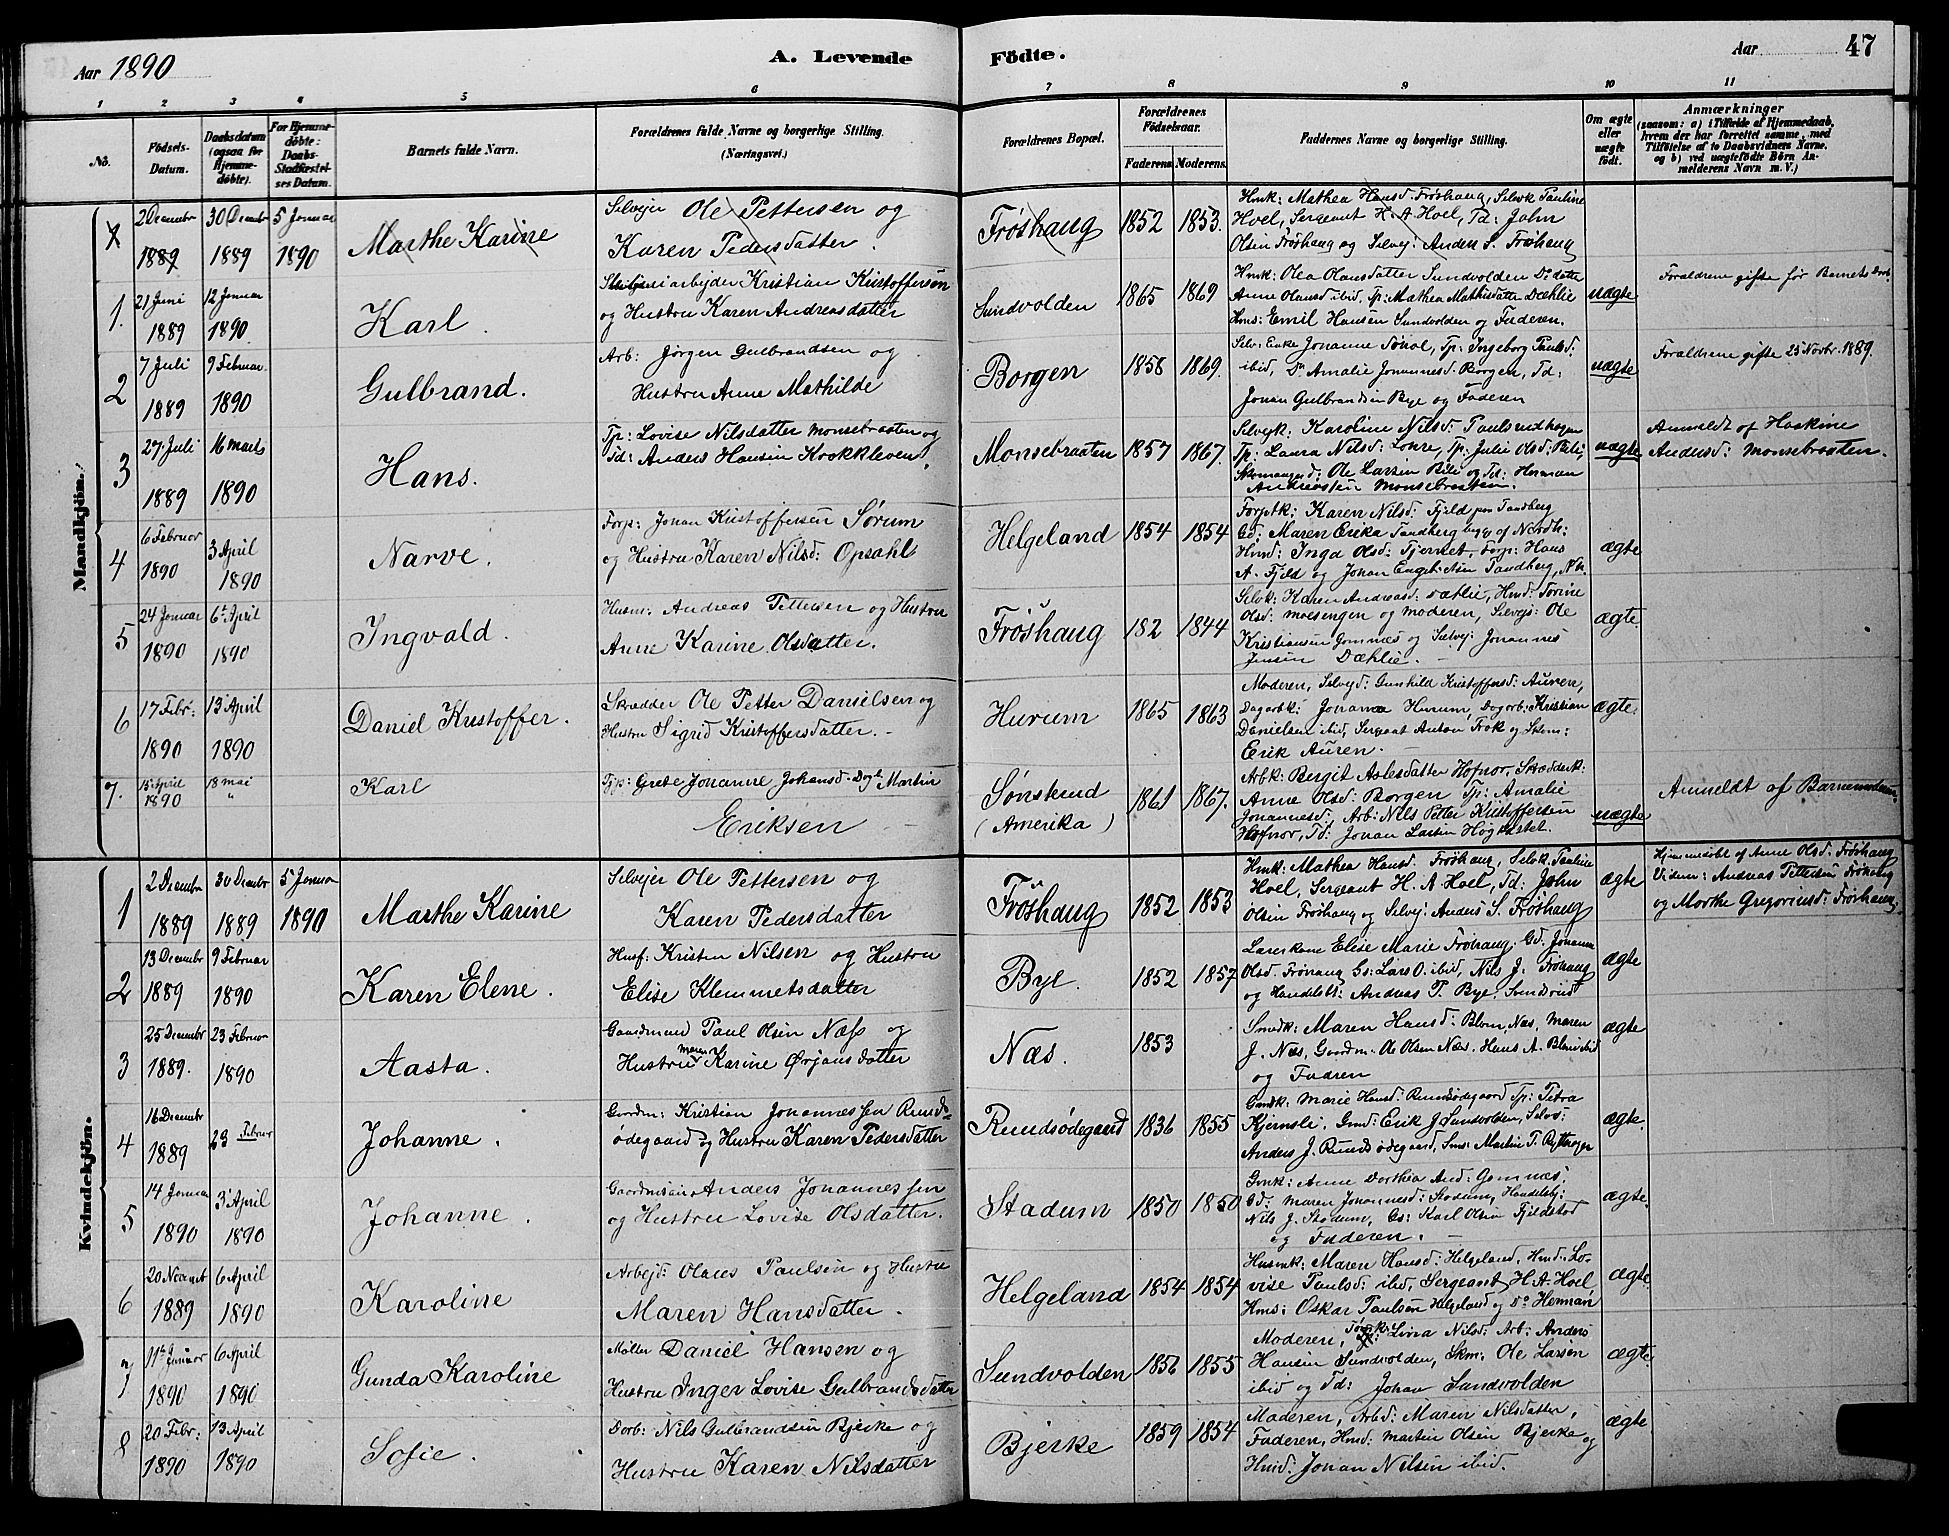 Aar 1890
A. Levende Födte.
Aar 47
1 2 3 4 5 6 7 8 9 10 11
No.
Födsels-Datum.
Daabsdatum (ogsaa for Hjemme-döbte).
For Hjemme-döbte: Daabs-Stadfæstel-ses Datum.
Barnets fulde Navn.
Forældrenes fulde Navne og borgerlige Stilling.
(Næringsvei.)
Forældrenes Bopæl.
Forældrenes Födselsaar.
Faderens. Moderens.
Faddernes Navne og borgerlige Stilling.
Om ægte eller uægte födt.
Anmærkninger
(saasom: a) i Tilfælde af Hjemmedaab, hvem der har forrettet samme, med Tilföielse af to Daabsvidners Navne, og b) ved uægtefödte Börn An-melderens Navn m. V.)
Mandkjön.
2 Decembr 1889 30 Decembr 1889 5 Januar 1890
Marthe Karine
Selvejer Ole Pettersen og
Karen Pedersdatter.
Frøshaug 1852 1853.
Hmk: Mathea Hansd. Frøshaug, Selvk Pauline
Hoel, Sergeant H. A Hoel, Td: John
Olsen Frøshaug og Selvej: Anders S. Frøshaug
1. 21 Juni 1889 12 Januar 1890
Karl.
arbejder Kristian Kristoffersen
og Hustru Karen Andreasdatter
Sundvolden 1865 1869
Hmk: Olea Olansdatter Sundvolden Do datter
Anne Olansd ibid, Tp: Mathea Mathisdatter Dæhlie
Hms: Emil Hansen Sundvolden og Faderen.
uægte
Forældrene gifte før Barnets Daab
2 7 Juli 1889 9 Februar 1890
Gulbrand.
Arb: Jørgen Gulbrandsen og
Hustru Anne Mathilde
Borgen 1858 1869.
Selv: Enke Johanne Tp: Ingeborg Paulsd:
ibid, Do Amalie Johannesd. Borgen, Td:
Johan Gulbrandsen Bye og Faderen
uægte
Forældrene gifte 25 Novbr. 1889.
3 27 Juli 1889 16 marts 1890
Hans.
Tp: Lovise Nilsdatter Monsebraaten og
Td: Anders Hansen Krokkleven.
Monsebraaten 1857 1867.
Selvejk: Karoline Nilsd:
Tp: Laura Nilsd: Tp: Julie Olsd:
Ole Larsen og Td: Herman
Andreassen Monsebraaten.
uægte
Anmeldt af Haakine
Andersd: Monsebraaten.
4 6 Februar 1890 3 April 1890
Narve.
Forp: Johan Kristoffersen Sørum
og Hustru Karen Nilsd: Opsahl
Helgeland 1854 1854
Forptk: Karen Nilsd: Fjeld paa Tandberg
Gd: Maren Erika Tandberg begge af Nordh:
Hmd: Inga Olsd: Tjernet, Forp: Hans
A. Fjeld og Johan Engebretsen Tandberg, Nh.
ægte
5 24 Januar 1890 6te April 1890
Ingvald.
Husm: Andreas Pettersen og Hustru
Anne Karine Olsdatter.
Frøshaug 182 1844
Selvk: Karen Andreasd: Dæhlie, Hmd: Torine
Olsd: Moesengen og Moderen, Selvejs: Ole
Kristiansen Gomnæs og Selvej: Johannes
Jensen Dæhlie.
ægte.
6 17 Febr: 1890 13 April 1890
Daniel Kristoffer.
Skrædder Ole Petter Danielsen og
Hustru Sigrid Kristoffersdatter.
Hurum 1865 1863
Moderen, Selvejd: Gunhild Kristoffersd: Auren,
Dagarbk: Johanna Hurum, Dagarb: Kristian
Danielsen ibid, Sergeant Anton Frok og Skom:
Erik Auren.
ægte.
7. 15 April 1890 18 mai "
Karl
Tjp: Grete Johanne Johansd. Dagl: Martin
Eriksen
Sønsterud (Amerika) 1861 1867.
Arbk: Bergit Aslesdatter Hofnor, Skrædderk:
Anne Olsd: Borgen Tp: Amalie
Johannesd:, Arb: Nils Petter Kristoffersen
Hofnor, Td: Johan Larsen Høgkastet.
uægte
Anmeldt af Barnemoderen.
Kvindekjön.
1 2 Decembr 1889 30 Decembr 1889 5 Januar 1890
Marthe Karine
Selvejer Ole Pettersen og
Karen Pedersdatter
Frøshaug 1852 1853
Hmk: Mathea Hansd. Frøshaug, Selvk. Pauline
Hoel, Sergeant H. A Hoel, Td: John
Olsen Frøshaug og Selvej: Anders S. Frøshaug
ægte
Hjemmedøbt af Anne Olsd: Frøshaug
Vidner: Andreas Pettersen Frøshaug
og Marthe Gregoriusd: Frøshaug
2 13 Decembr 1889 9 Februar 1890
Karen Elene.
Husf: Kristen Nilsen og Hustru
Elise Klemmetsdatter
Bye. 1852 1857
Elise Marie Frøhaug, Gd: Johanne
Olsd. Frøhaug Gs: Lars O. ibid, Nils J. Frøhaug
og Handelsb: Andreas T. Bye, Sundøen
ægte
3 25 Decembr 1889. 23 Februar 1890
Aasta.
Gaardmand Paul Olsen Næss og
Hustru Maren Karine Ørjansdatter
Næs. 1853
Smedk: Maren Hansd: Blom, Næs, Maren
J. Næs, Gaardm. Ole Olsen Næs. Hans A. Blom ibid
og Fadren
ægte
4 16 Decembr 1889 23 Februar
Johanne.
Gaardm: Kristian Johannessen Runds-
ødegaard og Hustru Karen Pedersdatter
Rundsødegaard 1836 1855
Gmdk: Marie Hansd: Rundsødegaard Tp: Petra
Kjernsli, Gmd: Erik J Sundvolden, Selvs:
Anders J. Rundsødegaard, Sms: Martin T. Rytterager
ægte.
5 14 Januar 1890 3 April 1890
Johanne.
Anders Johannessen
og Hustru Lovise Olsdatter.
Stadum 1850 1850
Gmk: Anne Dorthea And: Gomnæs,
Gd: Maren Johannesd: Stadum, Handelsbj:
Nils J. Stadum, Gs: Karl Olsen Fjeldstad
og Faderen.
ægte.
6 20 Novembr 1889 6 April 1890
Karoline
Arbejd: Olaus Paulsen og Hustru
Maren Hansdatter.
Helgeland 1854 1854
Husmk: Maren Hansd: Helgeland, Hmd: Lo-
vise Paulsd: ibid, Sergeant H. A. Hoel
Hms: Oskar Paulsen Helgeland og Do Herman
ægte.
7 11te Januar 1890 6 April 1890
Gunda Karoline
Møller Daniel Hansen og
Hustru Inger Lovise Gulbrandsdatter
Sundvolden 1856 1855
Moderen, Lina Nilsd: Arb: Anders
Hansen Sundvolden, Skm: Ole Larsen
ibid og Td: Johan Sundvolden
ægte.
8 20 Febr: 1890 13 April 1890
Sofie.
Darb: Nils Gulbrandsen Bjerke og
Hustru Karen Nilsdatter
Bjerke 1859 1854
Moderen, Arbd: Maren Nilsdatter,
Faderen, Hmd: Martin Olsen Bjerke og
Hmd: Johan Nilsen ibid.
ægte